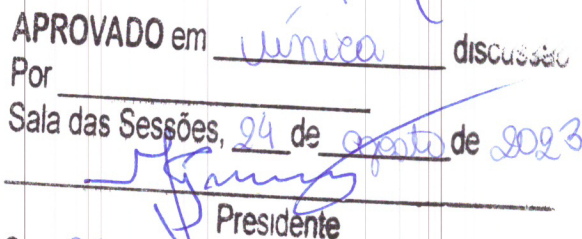 APROVADO em única discussão
Por
Sala das Sessões, 24 de agosto de 2023
Presidente